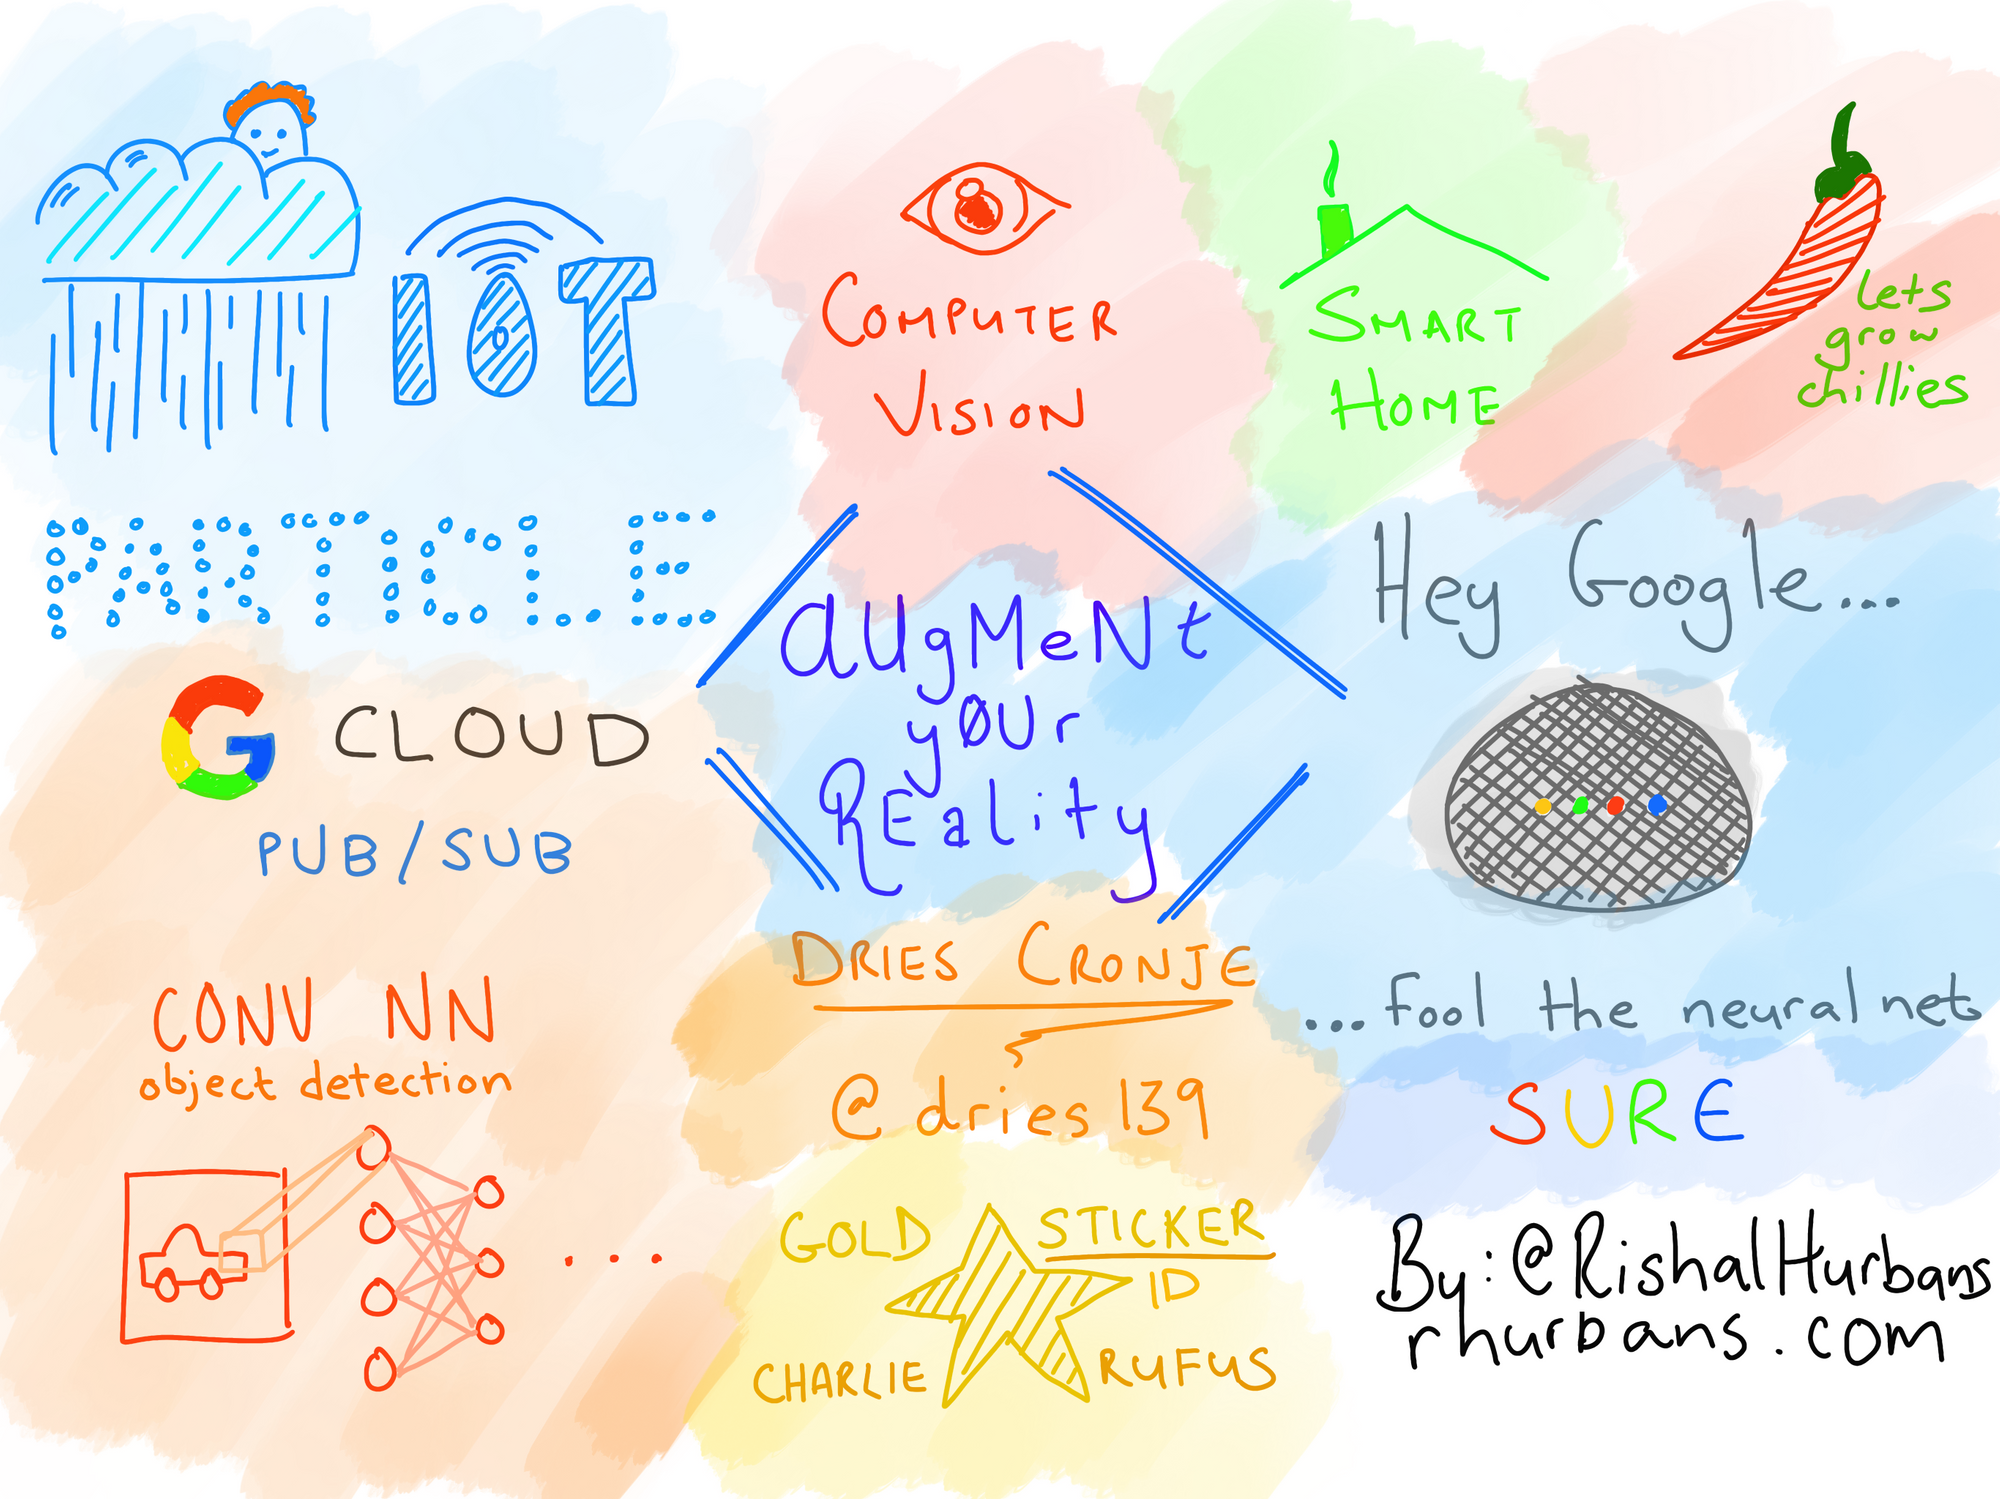 IOT
PARTICLE
G CLOUD
PUB/SUB
CONV NN
object detection
...
COMPUTER
VISION
SMART
HOME
lets
grow
chillies
aUgMeNt
y0Ur
REality
Hey Google...
...fool the neural net
SURE
DRIES CRONJE
@dries139
GOLD STICKER
ID
CHARLIE RUFUS
By: @RishalHurbans
rhurbans.com